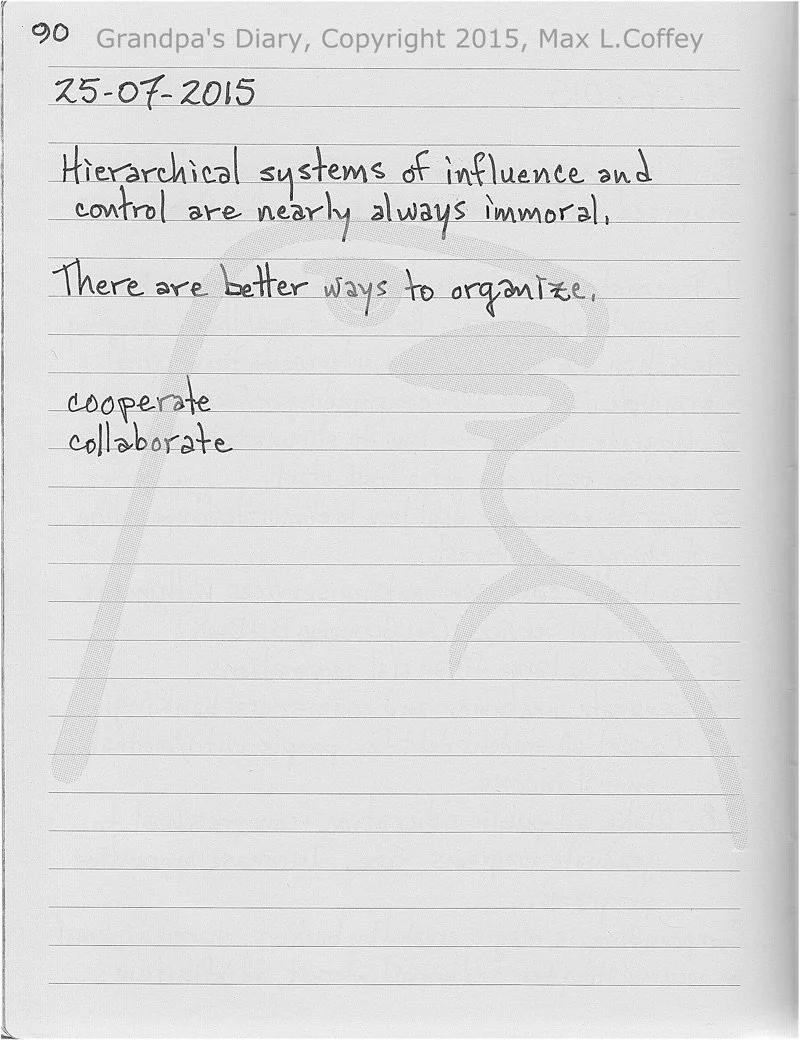 90
Grandpa's Diary, Copyright 2015, Max L.Coffey
25-07-2015
Hierarchical systems of influence and
control are nearly always immoral.
There are better ways to organize.
cooperate
collaborate